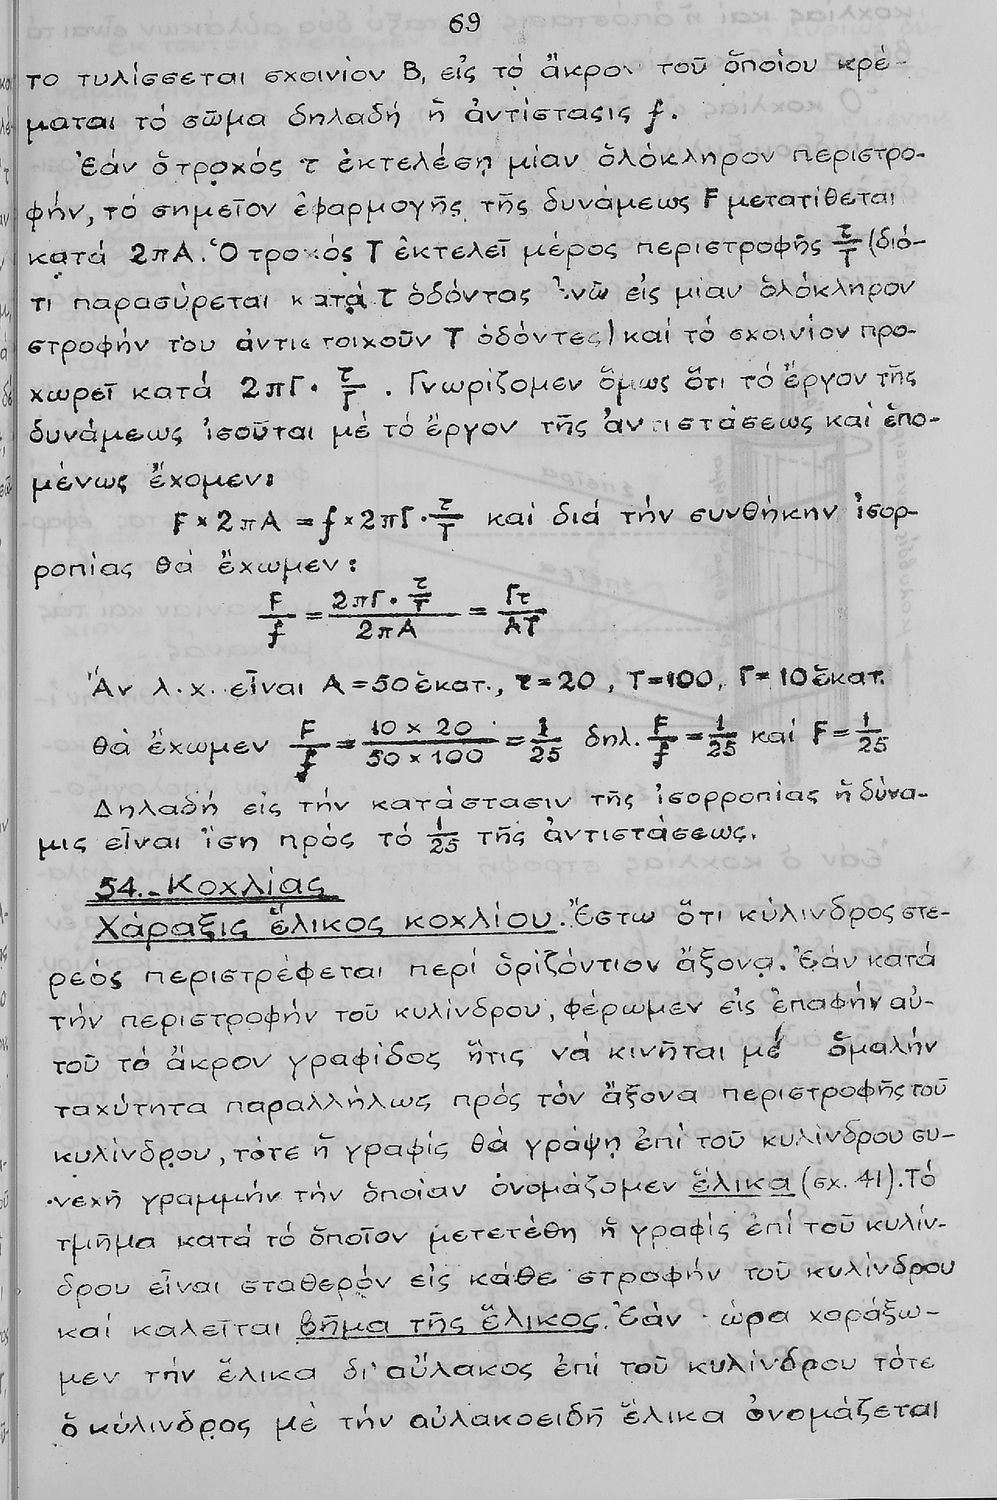 69
το τυλίσσεται σχοινίον Β, εἰς τό ἄκρον τοῦ ὁποίου κρέ-
μαται τό σῶμα δηλαδή ἡ ἀντίστασις f.
Ἐάν ὁ τροχός τ ἐκτελέσῃ μίαν ὁλόκληρον περιστρο-
φήν, τό σημεῖον ἐφαρμογῆς τῆς δυνάμεως F μετατίθεται
κατά 2πΑ. Ὁ τροχός Τ ἐκτελεῖ μέρος περιστροφῆς τ/Τ (διό-
τι παρασύρεται κατά τ ὀδόντας ἐνῶ εἰς μίαν ὁλόκληρον
στροφήν του ἀντιστοιχοῦν Τ ὀδόντες) καί τό σχοινίον προ-
χωρεῖ κατά 2πΓ · τ/Τ . Γνωρίζομεν ὅμως ὅτι τό ἔργον τῆς
δυνάμεως ἰσοῦται μέ τό ἔργον τῆς ἀντιστάσεως καί ἑπο-
μένως ἔχομεν:
F × 2πΑ = f × 2πΓ · τ/Τ καί διά τήν συνθήκην ἰσορ-
ροπίας θά ἔχωμεν:
F/f = (2πΓ · τ/Τ)/(2πΑ) = Γτ/ΑΤ
Ἄν λ.χ. εἶναι Α = 50 ἑκατ., τ = 20 , Τ = 100, Γ = 10 ἑκατ.
θά ἔχωμεν F/f = (10 × 20)/(50 × 100) = 1/25 δηλ. F/f = 1/25 καί F = 1/25
Δηλαδή εἰς τήν κατάστασιν τῆς ἰσορροπίας ἡ δύνα-
μις εἶναι ἴση πρός τό 1/25 τῆς ἀντιστάσεως.
54.- Κοχλίας
Χάραξις ἕλικος κοχλίου. Ἔστω ὅτι κύλινδρος στε-
ρεός περιστρέφεται περί ὁριζόντιον ἄξονα. Ἐάν κατά
τήν περιστροφήν τοῦ κυλίνδρου, φέρωμεν εἰς ἐπαφήν αὐ-
τοῦ τό ἄκρον γραφίδος ἥτις νά κινῆται μέ ὁμαλήν
ταχύτητα παραλλήλως πρός τόν ἄξονα περιστροφῆς τοῦ
κυλίνδρου, τότε ἡ γραφίς θά γράψῃ ἐπί τοῦ κυλίνδρου συ-
νεχῆ γραμμήν τήν ὁποίαν ὀνομάζομεν ἕλικα (σχ. 41). Τό
τμῆμα κατά τό ὁποῖον μετετέθη ἡ γραφίς ἐπί τοῦ κυλίν-
δρου εἶναι σταθερόν εἰς κάθε στροφήν τοῦ κυλίνδρου
καί καλεῖται βῆμα τῆς ἕλικος. Ἐάν ὡρα χαράξω-
μεν τήν ἕλικα δι' αὔλακος ἐπί τοῦ κυλίνδρου τότε
ὁ κύλινδρος μέ τήν αὐλακοειδῆ ἕλικα ὀνομάζεται